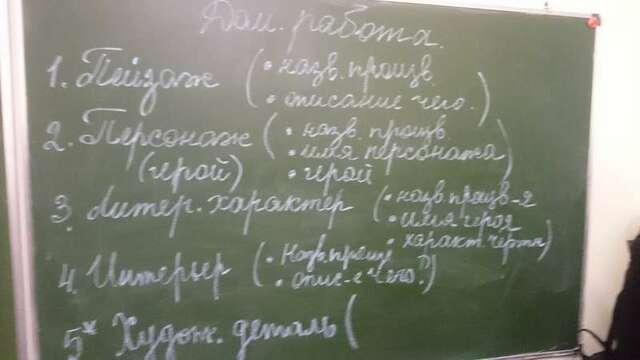 Дом. работа.
1. Пейзаж ( • назв. произв.
• описание чего. )
2. Персонаж ( • назв. произв.
• имя персонажа )
(герой) • герой
3. Литер. характер ( • назв. произв-я
• имя героя
• характ. черта )
4. Интерьер ( • Назв. произв
• опис-е чего? )
5* Худож. деталь (